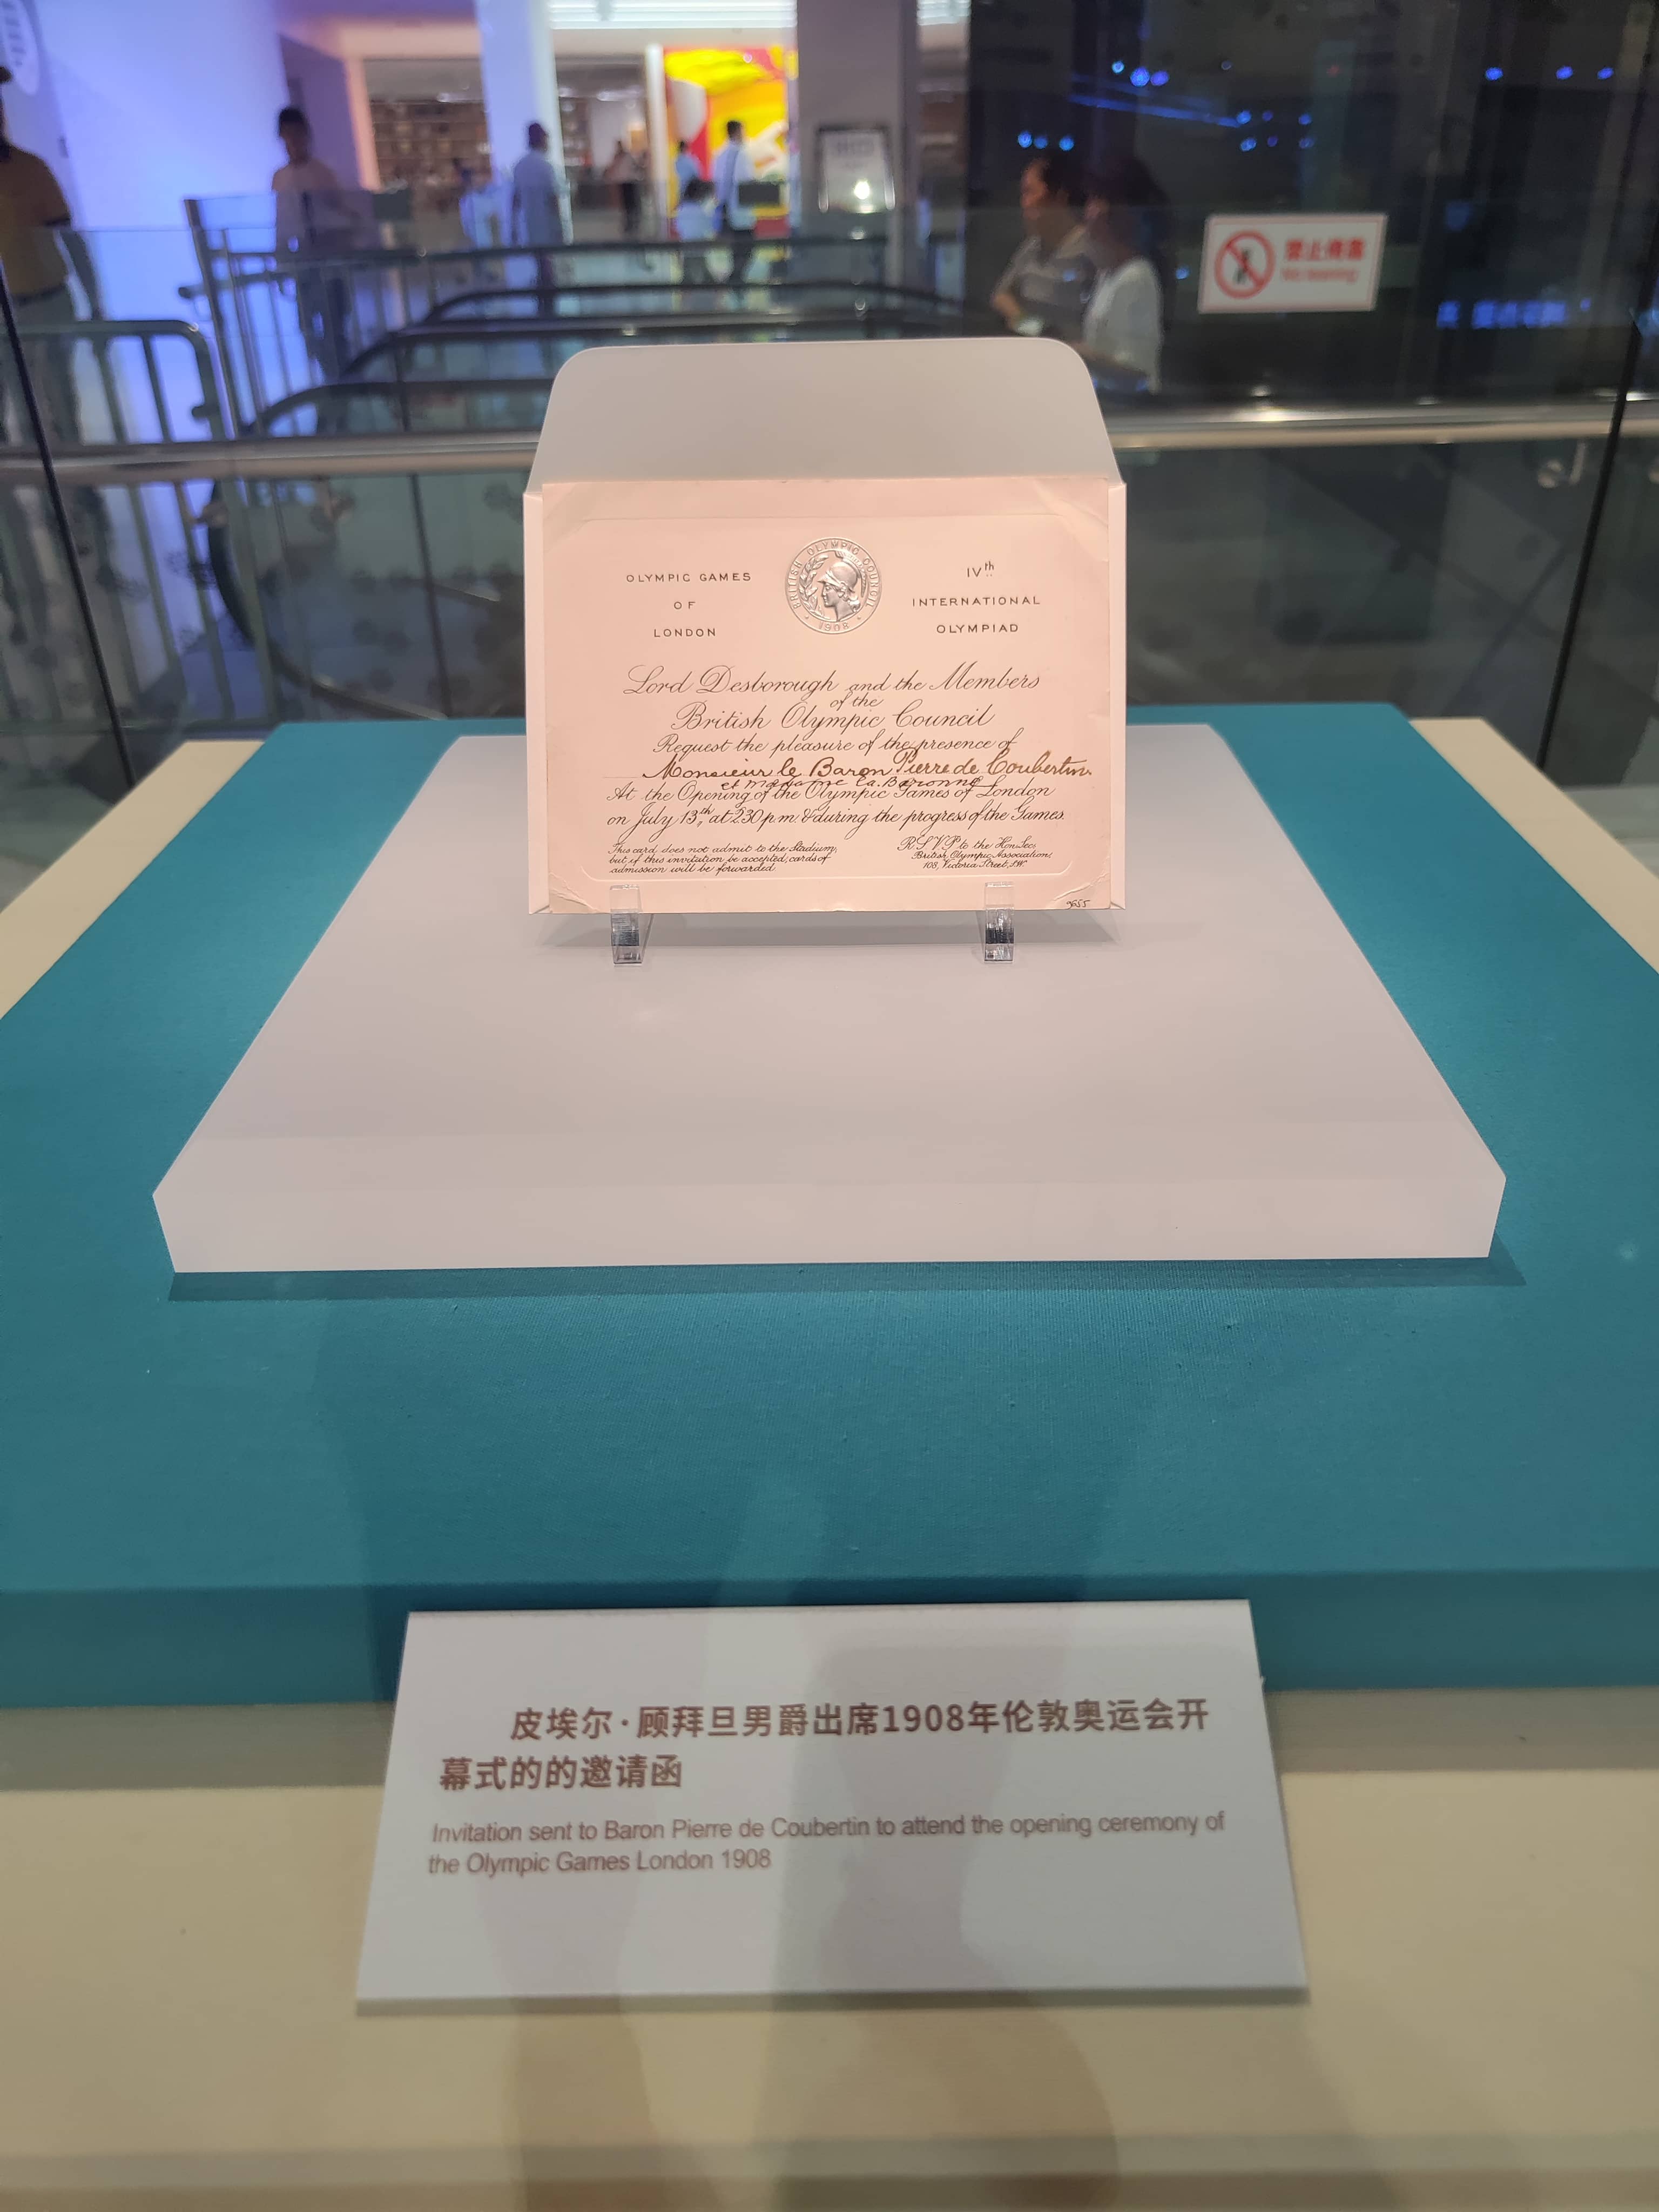 禁止倚靠
No leaning
OLYMPIC GAMES
OF
LONDON
BRITISH OLYMPIC COUNCIL
1908
IVth
INTERNATIONAL
OLYMPIAD
Lord Desborough and the Members
of the
British Olympic Council
Request the pleasure of the presence of
Monsieur le Baron Pierre de Coubertin.
et Madame La Baronne
At the Opening of the Olympic Games of London
on July 13th, at 2.30 p.m. & during the progress of the Games.
This card does not admit to the Stadium,
but if this invitation be accepted, cards of
admission will be forwarded.
R.S.V.P. to the Hon. Sec:
British Olympic Association,
108, Victoria Street, S.W.
皮埃尔·顾拜旦男爵出席1908年伦敦奥运会开
幕式的的邀请函
Invitation sent to Baron Pierre de Coubertin to attend the opening ceremony of
the Olympic Games London 1908